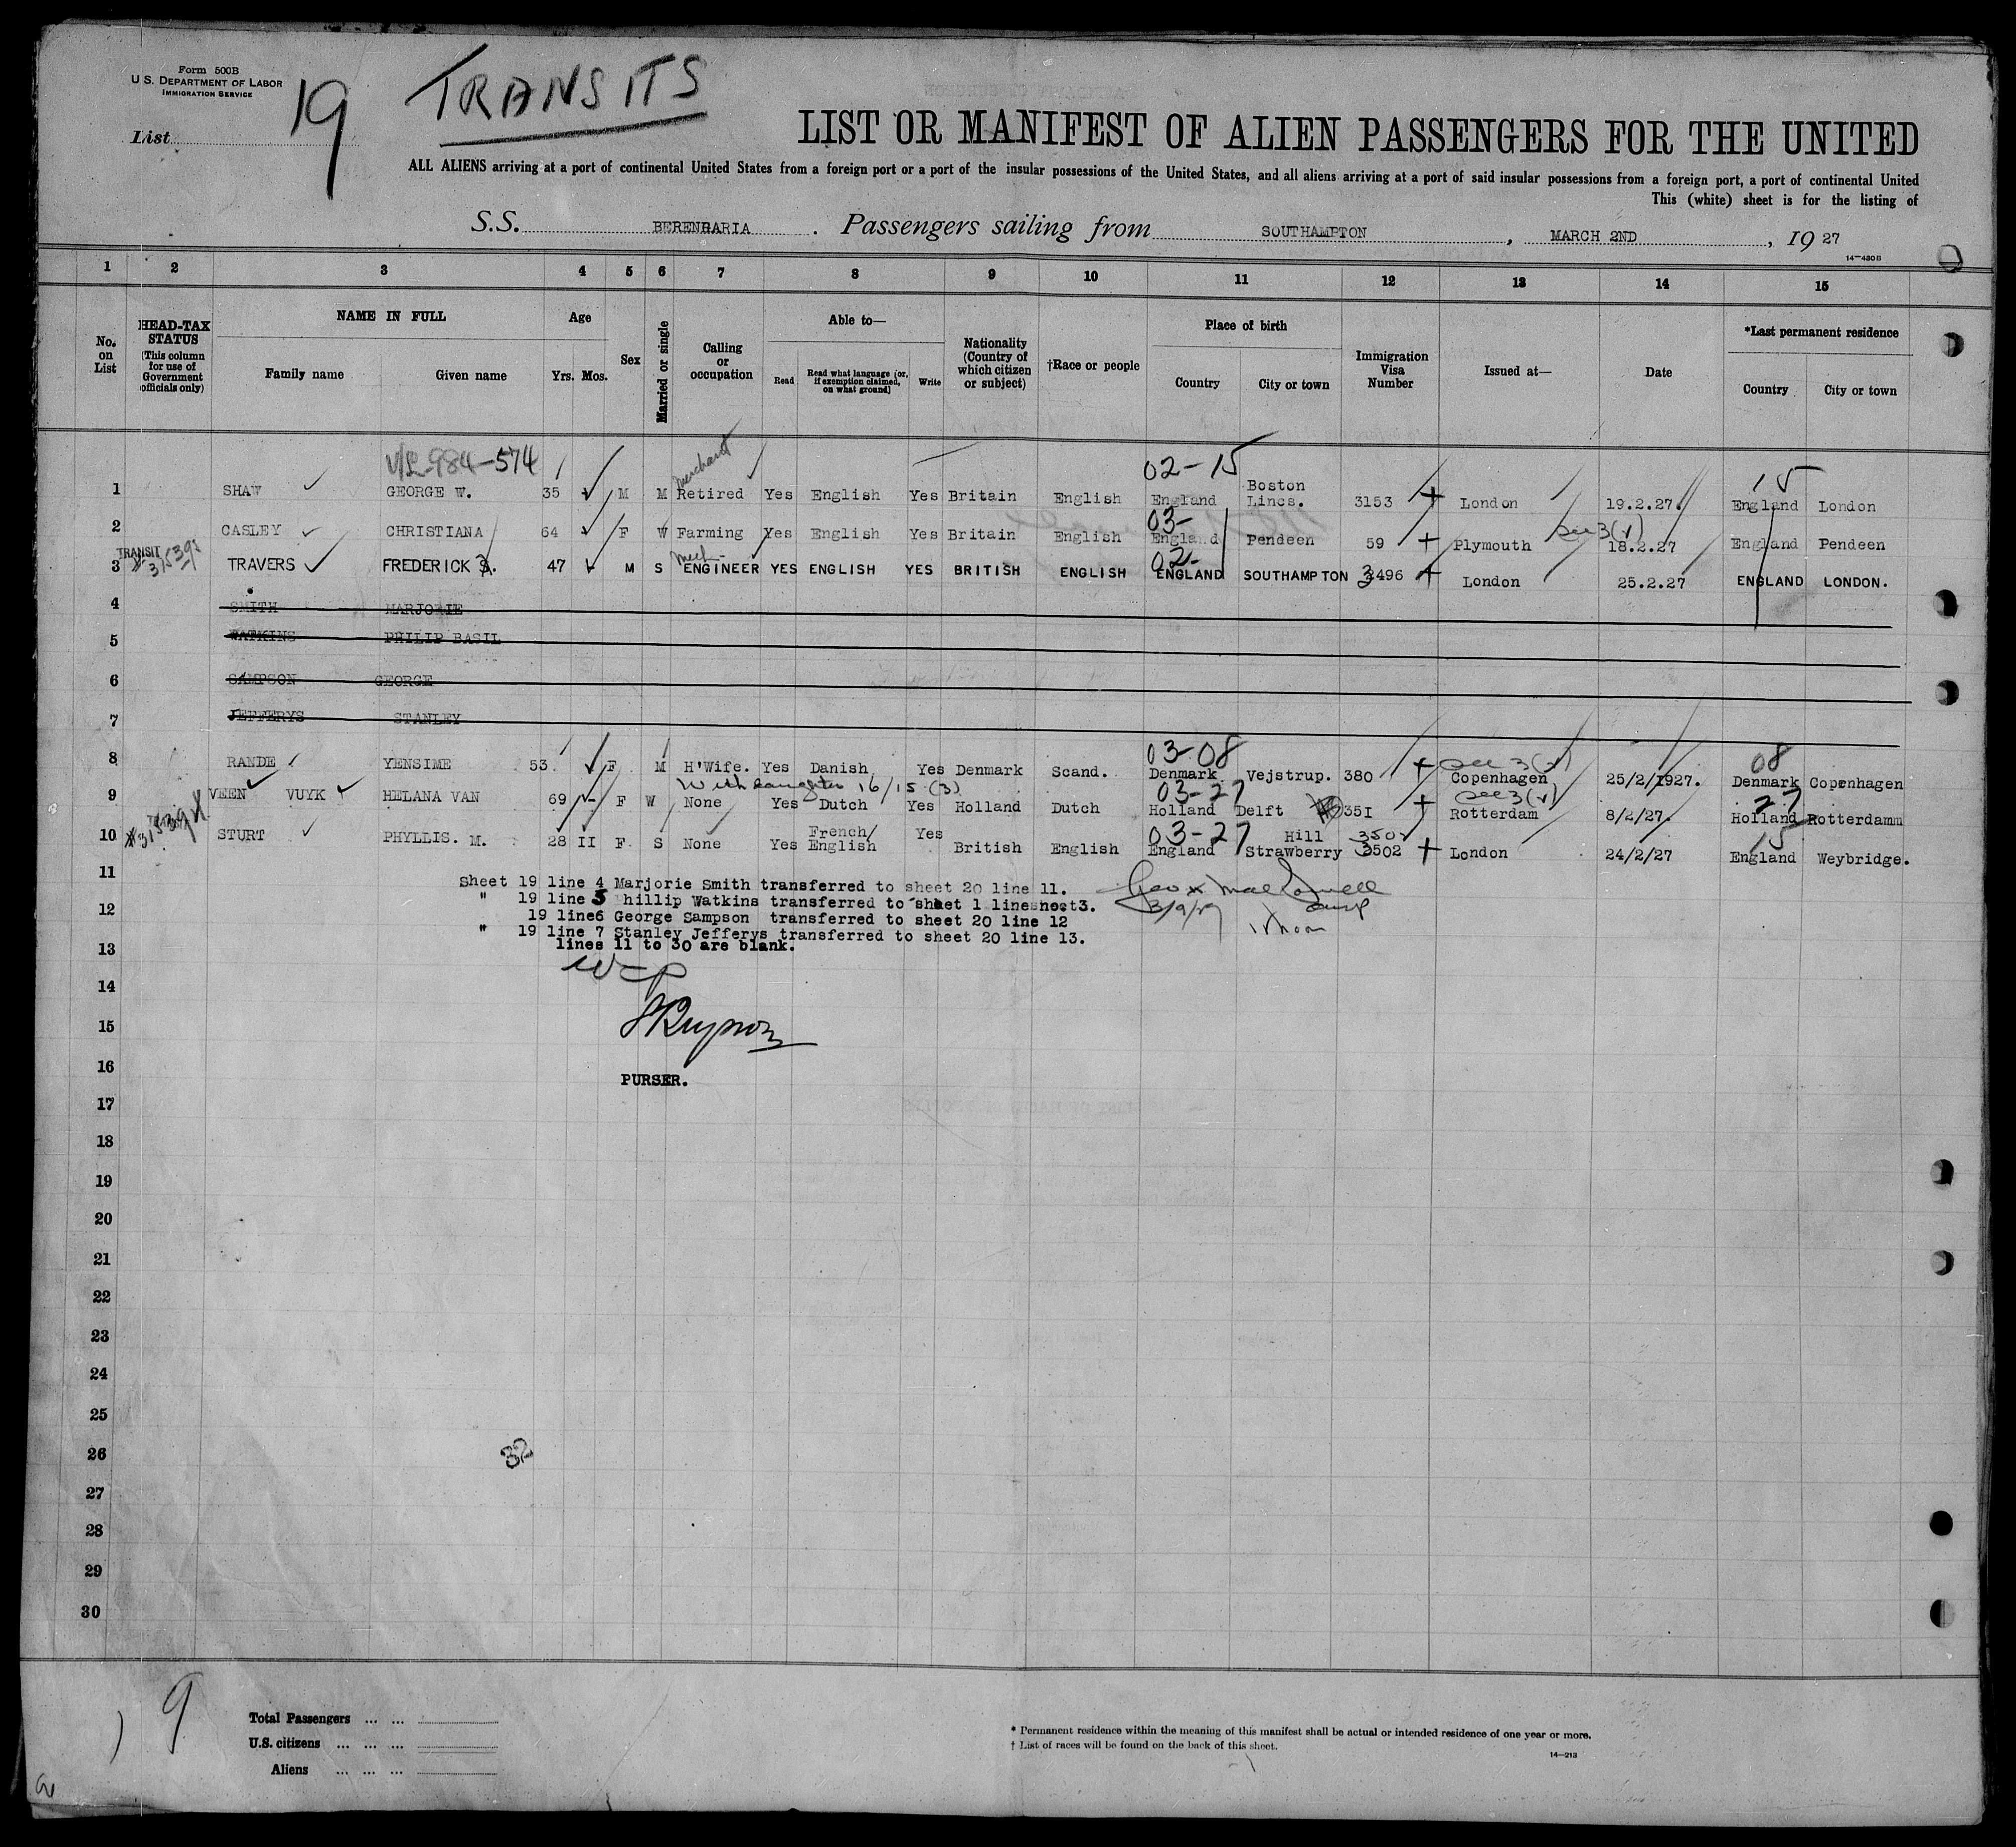 Form 500B
U.S. DEPARTMENT OF LABOR
IMMIGRATION SERVICE
List 19
TRANSITS
LIST OR MANIFEST OF ALIEN PASSENGERS FOR THE UNITED
ALL ALIENS arriving at a port of continental United States from a foreign port or a port of the insular possessions of the United States, and all aliens arriving at a port of said insular possessions from a foreign port, a port of continental United
This (white) sheet is for the listing of
S.S. BERENGARIA. Passengers sailing from SOUTHAMPTON, MARCH 2ND, 19 27
14-430B
1 2 3 4 5 6 7 8 9 10 11 12 13 14 15
No. on List
HEAD-TAX STATUS (This column for use of Government officials only)
NAME IN FULL
Family name Given name
Age
Yrs. Mos.
Sex
Married or single
Calling or occupation
Able to—
Read Read what language (or, if exemption claimed, on what ground) Write
Nationality (Country of which citizen or subject)
†Race or people
Place of birth
Country City or town
Immigration Visa Number
Issued at—
Date
*Last permanent residence
Country City or town
V/L 984-574 merchant 02-15 15
1 SHAW GEORGE W. 35 M M Retired Yes English Yes Britain English England Boston Lincs. 3153 London 19.2.27. England London
03- see 3(v)
2 CASLEY CHRISTIANA 64 F W Farming Yes English Yes Britain English England Pendeen 59 Plymouth 18.2.27 England Pendeen
TRANSIT mech- 02-
3 TRAVERS FREDERICK 47 M S ENGINEER YES ENGLISH YES BRITISH ENGLISH ENGLAND SOUTHAMPTON 3496 London 25.2.27 ENGLAND LONDON.
4 SMITH MARJORIE
5 WATKINS PHILIP BASIL
6 SAMPSON GEORGE
7 JEFFERYS STANLEY
03-08 see 3(v) 08
8 RANDE YENSIME 53 F M H'Wife. Yes Danish Yes Denmark Scand. Denmark Vejstrup. 380 Copenhagen 25/2/1927. Denmark Copenhagen
With daughter 16/15 (3) 03-27 see 3(v) 27
9 VEEN VUYK HELANA VAN 69 F W None Yes Dutch Yes Holland Dutch Holland Delft 35I Rotterdam 8/2/27. Holland Rotterdamm
03-27 15
10 STURT PHYLLIS. M. 28 II F. S None Yes French/ English Yes British English England Hill Strawberry 3502 London 24/2/27 England Weybridge.
11 Sheet 19 line 4 Marjorie Smith transferred to sheet 20 line 11.
12 " 19 line 5 Phillip Watkins transferred to sheet 1 line
19 line6 George Sampson transferred to sheet 20 line 12
" 19 line 7 Stanley Jefferys transferred to sheet 20 line 13.
13 lines 11 to 30 are blank.
14
15
16 PURSER.
17
18
19
20
21
22
23
24
25
26 32
27
28
29
30
19
Total Passengers ... ...
U.S. citizens ... ... ...
Aliens ... ... ...
* Permanent residence within the meaning of this manifest shall be actual or intended residence of one year or more.
† List of races will be found on the back of this sheet.
14-213